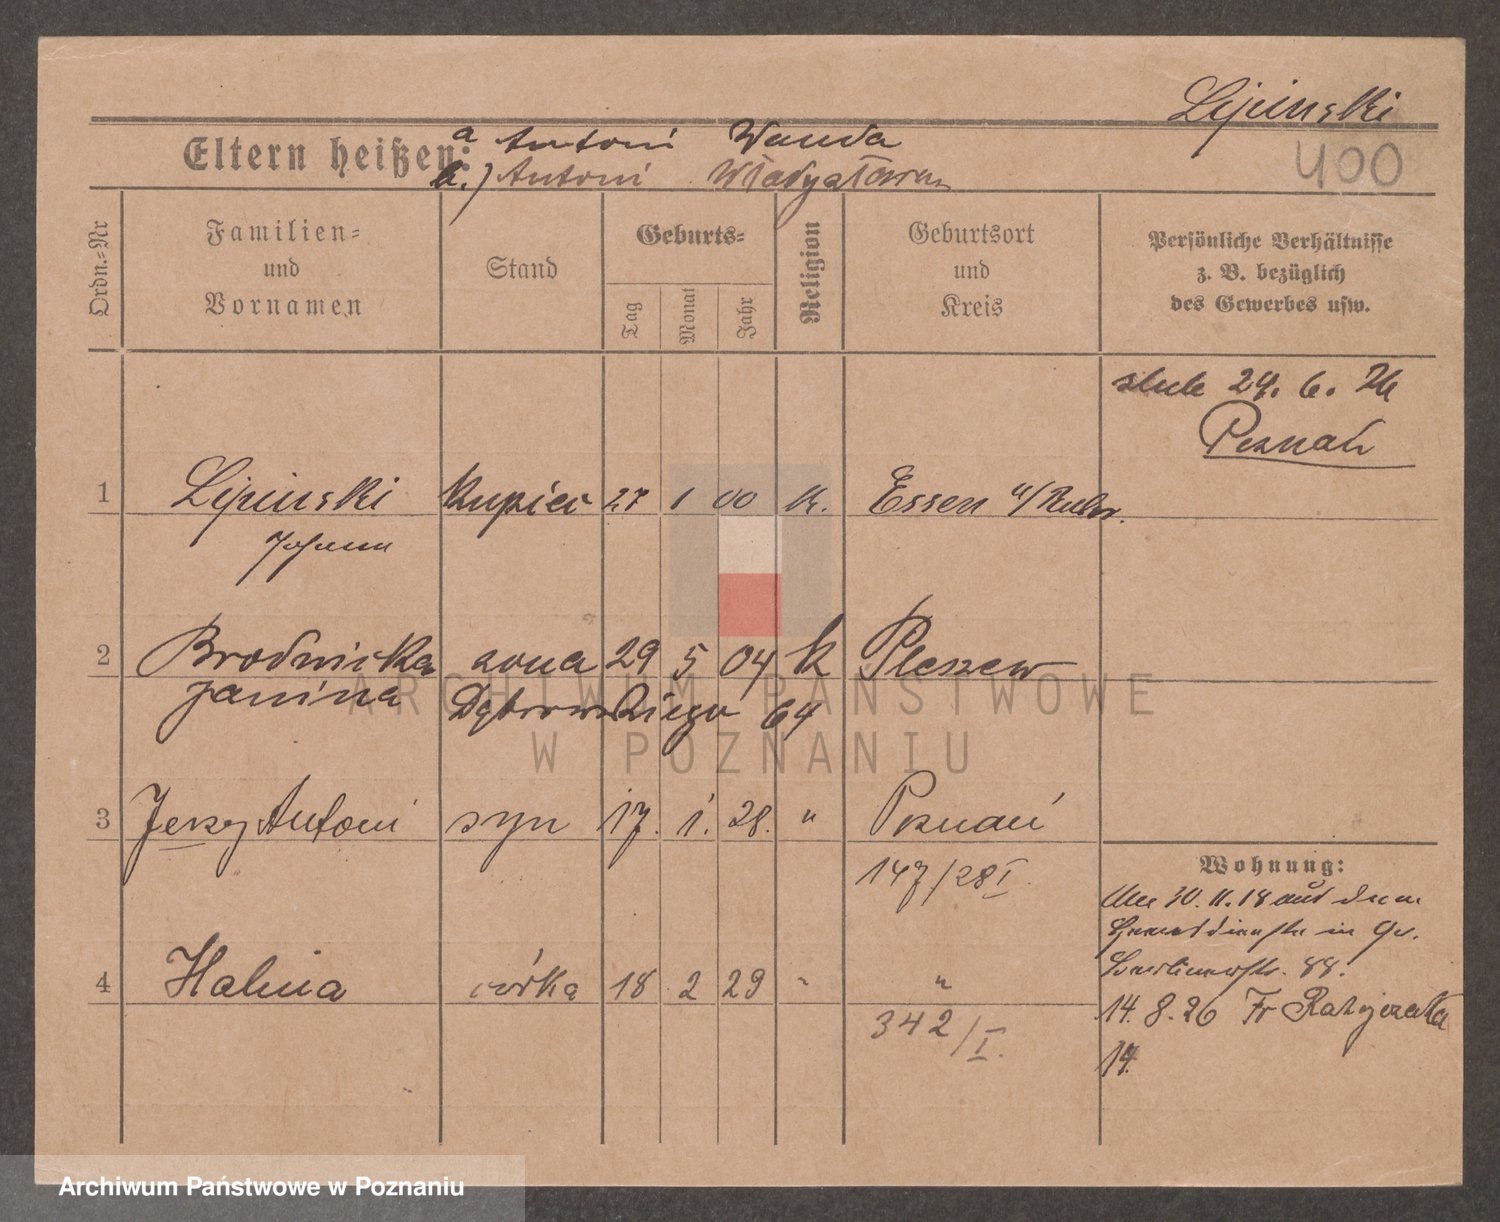 Lipinski
400
Eltern heißen:
a Antoni Wanda
b.) Antoni Władysława
Ordn.-Nr
Familien-
und
Vornamen
Stand
Geburts-
Tag
Monat
Jahr
Religion
Geburtsort
und
Kreis
Persönliche Verhältnisse
z. B. bezüglich
des Gewerbes usw.
ślub 24. 6. 26
Poznań
1 Lipinski kupiec 27 1 00 K. Essen a/Ruhr.
Johann
2 Brodnicka żona 29 5 04 k Pleszew
Janina Dąbrowskiego 64
ARCHIWUM PAŃSTWOWE
W POZNANIU
3 Jerzy Antoni syn 17. 1. 28. " Poznań
147/28 I
4 Halina córka 18 2 29 " "
342/I.
Wohnung:
Am 30.11.18 aus dem
Heeresdienste in Gr.
Berlinerstr. 88.
14. 8. 26 Fr Ratajczaka
14.
Archiwum Państwowe w Poznaniu